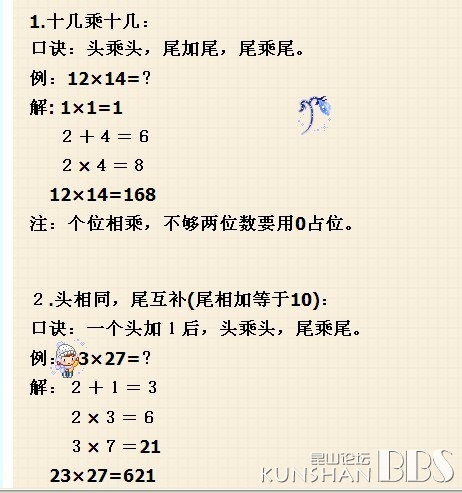 1.十几乘十几：
口诀：头乘头，尾加尾，尾乘尾。
例：12×14=？
解: 1×1=1
２＋４＝６
２×４＝８
12×14=168
注：个位相乘，不够两位数要用0占位。
２.头相同，尾互补(尾相加等于10)：
口诀：一个头加１后，头乘头，尾乘尾。
例：3×27=？
解：２＋１＝３
２×３＝６
３×７＝21
23×27=621
昆山论坛
KUNSHAN BBS